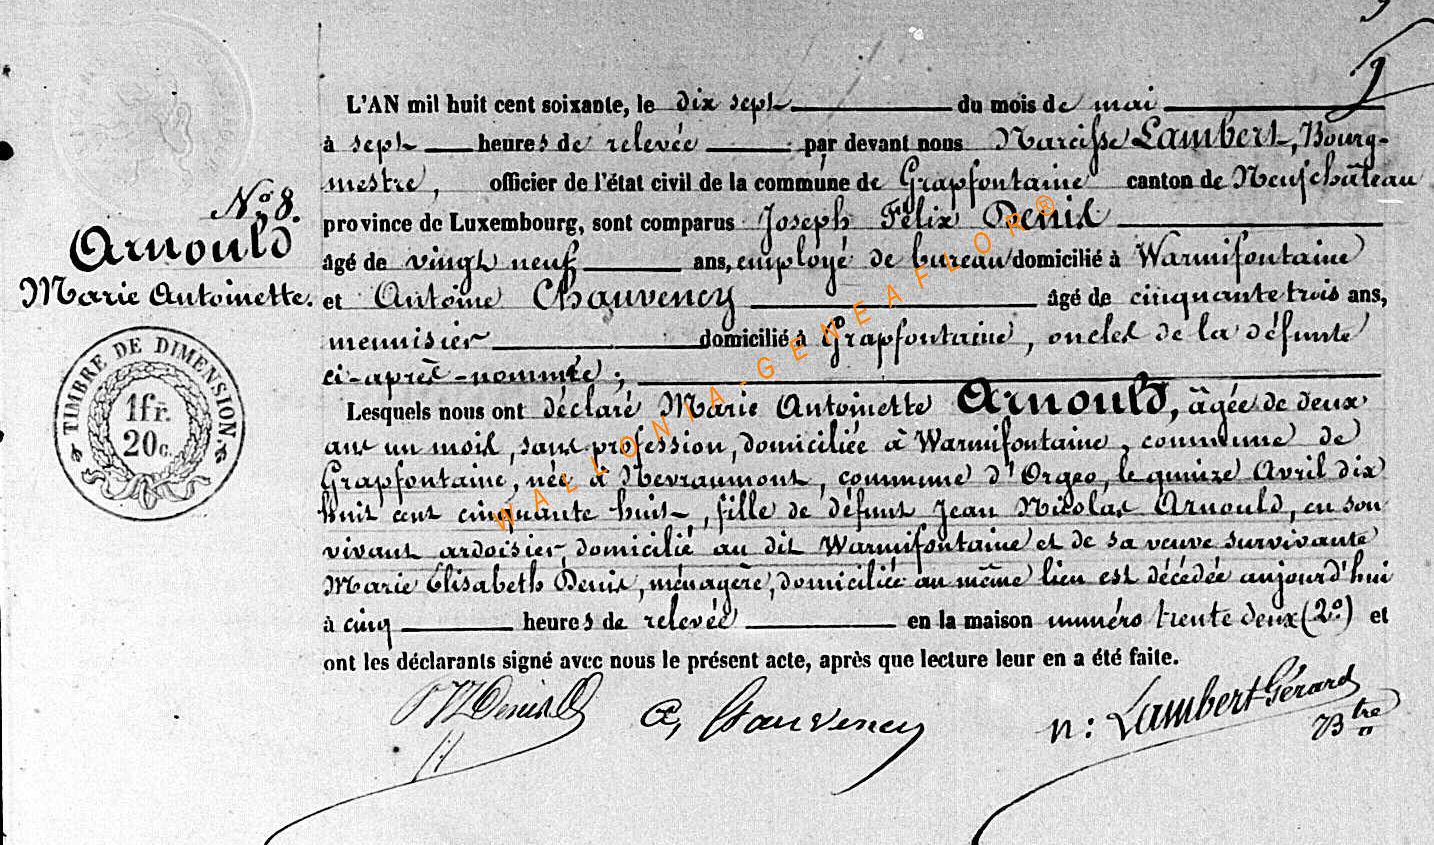 L'AN mil huit cent soixante, le dix sept du mois de mai
à sept heures de relevée par devant nous Narcisse Lambert, Bourg-
mestre, officier de l'état civil de la commune de Grapfontaine canton de Neufchâteau
province de Luxembourg, sont comparus Joseph Félix Denis
âgé de vingt neuf ans, employé de bureau domicilié à Warmifontaine
et Antoine Chauvency âgé de cinquante trois ans,
menuisier domicilié à Grapfontaine, oncles de la défunte
ci-après-nommée;
Lesquels nous ont déclaré Marie Antoinette Arnould, âgée de deux
ans un mois, sans profession, domiciliée à Warmifontaine, commune de
Grapfontaine, née à Nevraumont, commune d'Orgeo, le quinze Avril dix
huit cent cinquante huit, fille de défunt Jean Nicolas Arnould, en son
vivant ardoisier domicilié au dit Warmifontaine et de sa veuve survivante
Marie Élisabeth Denis, ménagère, domiciliée au même lieu est décédée aujourd'hui
à cinq heures de relevée en la maison numéro trente deux (2°.) et
ont les déclarants signé avec nous le présent acte, après que lecture leur en a été faite.
N° 8.
Arnould
Marie Antoinette.
TIMBRE DE DIMENSION.
1 fr.
20 c.
Denis
A, Chauvency
n: Lambert-Gérard
Btre
WALLONIA-GENEAFLOR®